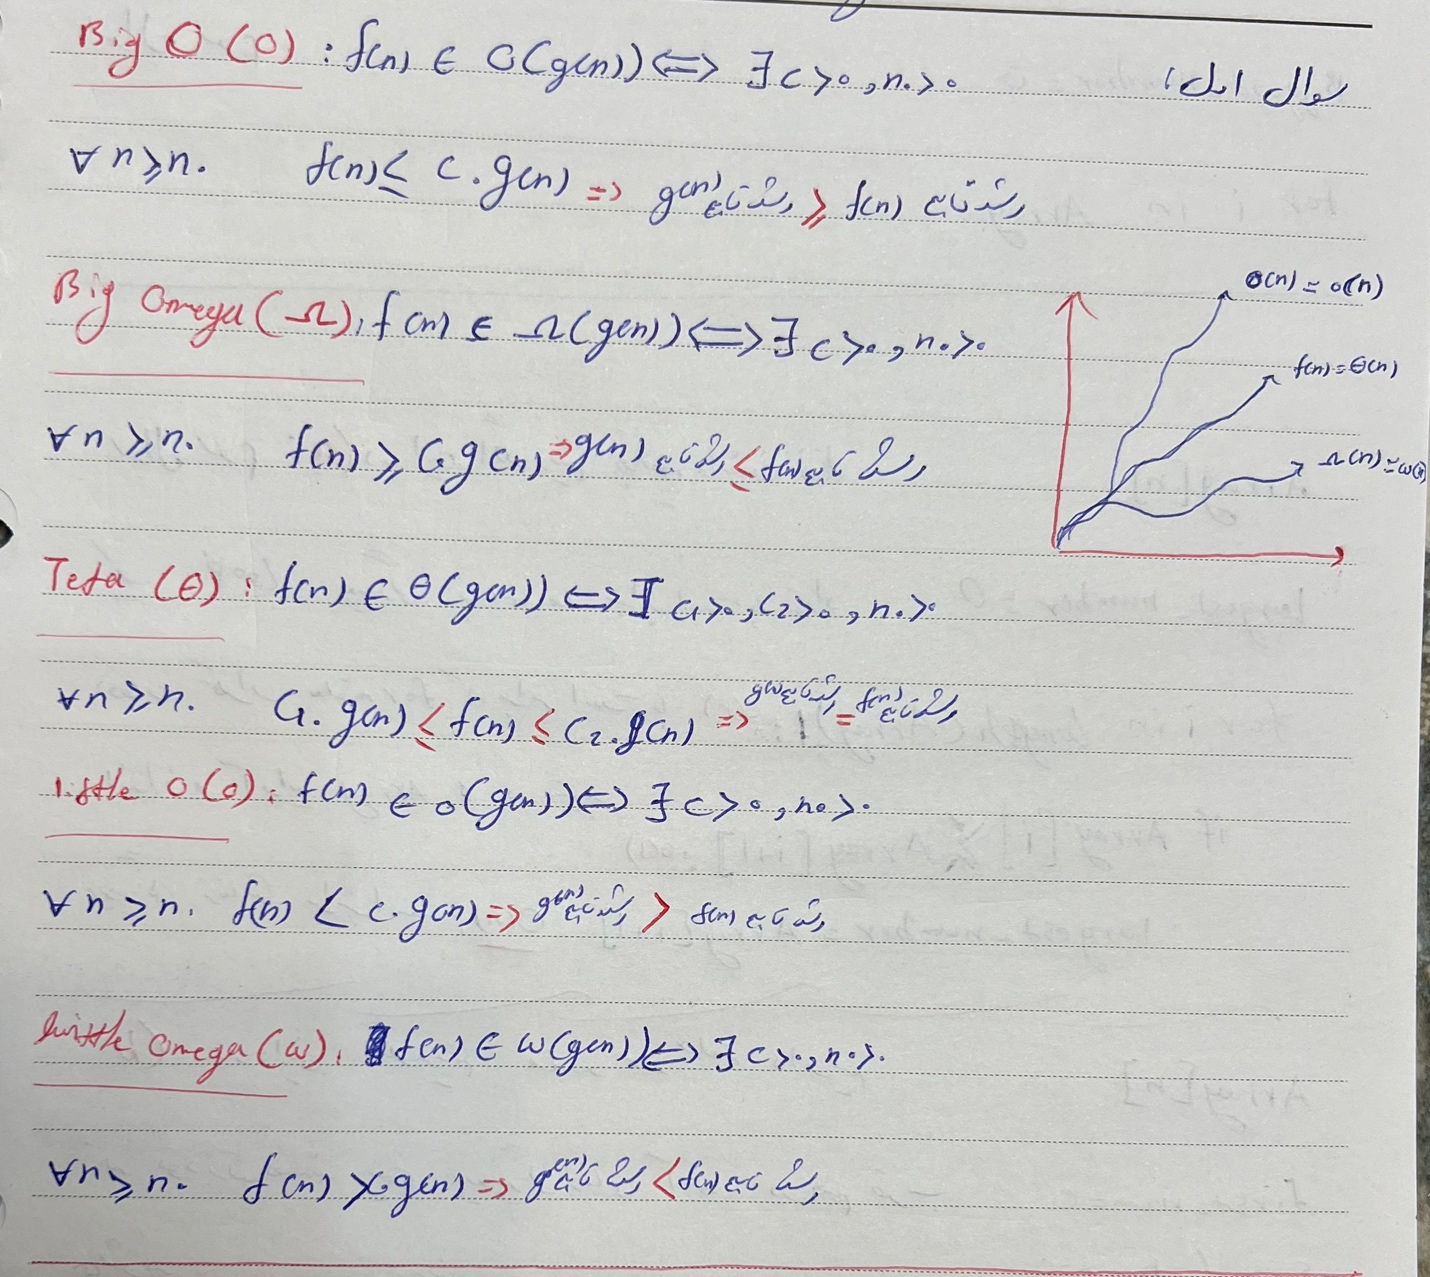 سوال اول:
Big O (O) : f(n) ∈ O(g(n)) ⟺ ∃ c>0, n₀>0
∀ n≥n₀ f(n) ≤ c.g(n) => رشد تابع g(n) ≥ رشد تابع f(n)
Big Omega (Ω): f(n) ∈ Ω(g(n)) ⟺ ∃ c>0, n₀>0
∀ n≥n₀ f(n) ≥ c.g(n) => رشد تابع g(n) ≤ رشد تابع f(n)
O(n) ≃ o(n)
f(n)=Θ(n)
Ω(n) ≃ ω(n)
Teta (θ) : f(n) ∈ θ(g(n)) ⟺ ∃ c₁>0, c₂>0, n₀>0
∀ n≥n₀ c₁.g(n) ≤ f(n) ≤ c₂.g(n) => رشد تابع g(n) = رشد تابع f(n)
little o (o): f(n) ∈ o(g(n)) ⟺ ∃ c>0, n₀>0
∀ n≥n₀ f(n) < c.g(n) => رشد تابع g(n) > رشد تابع f(n)
little omega (ω): f(n) ∈ ω(g(n)) ⟺ ∃ c>0, n₀>0
∀ n≥n₀ f(n) > c.g(n) => رشد تابع g(n) < رشد تابع f(n)